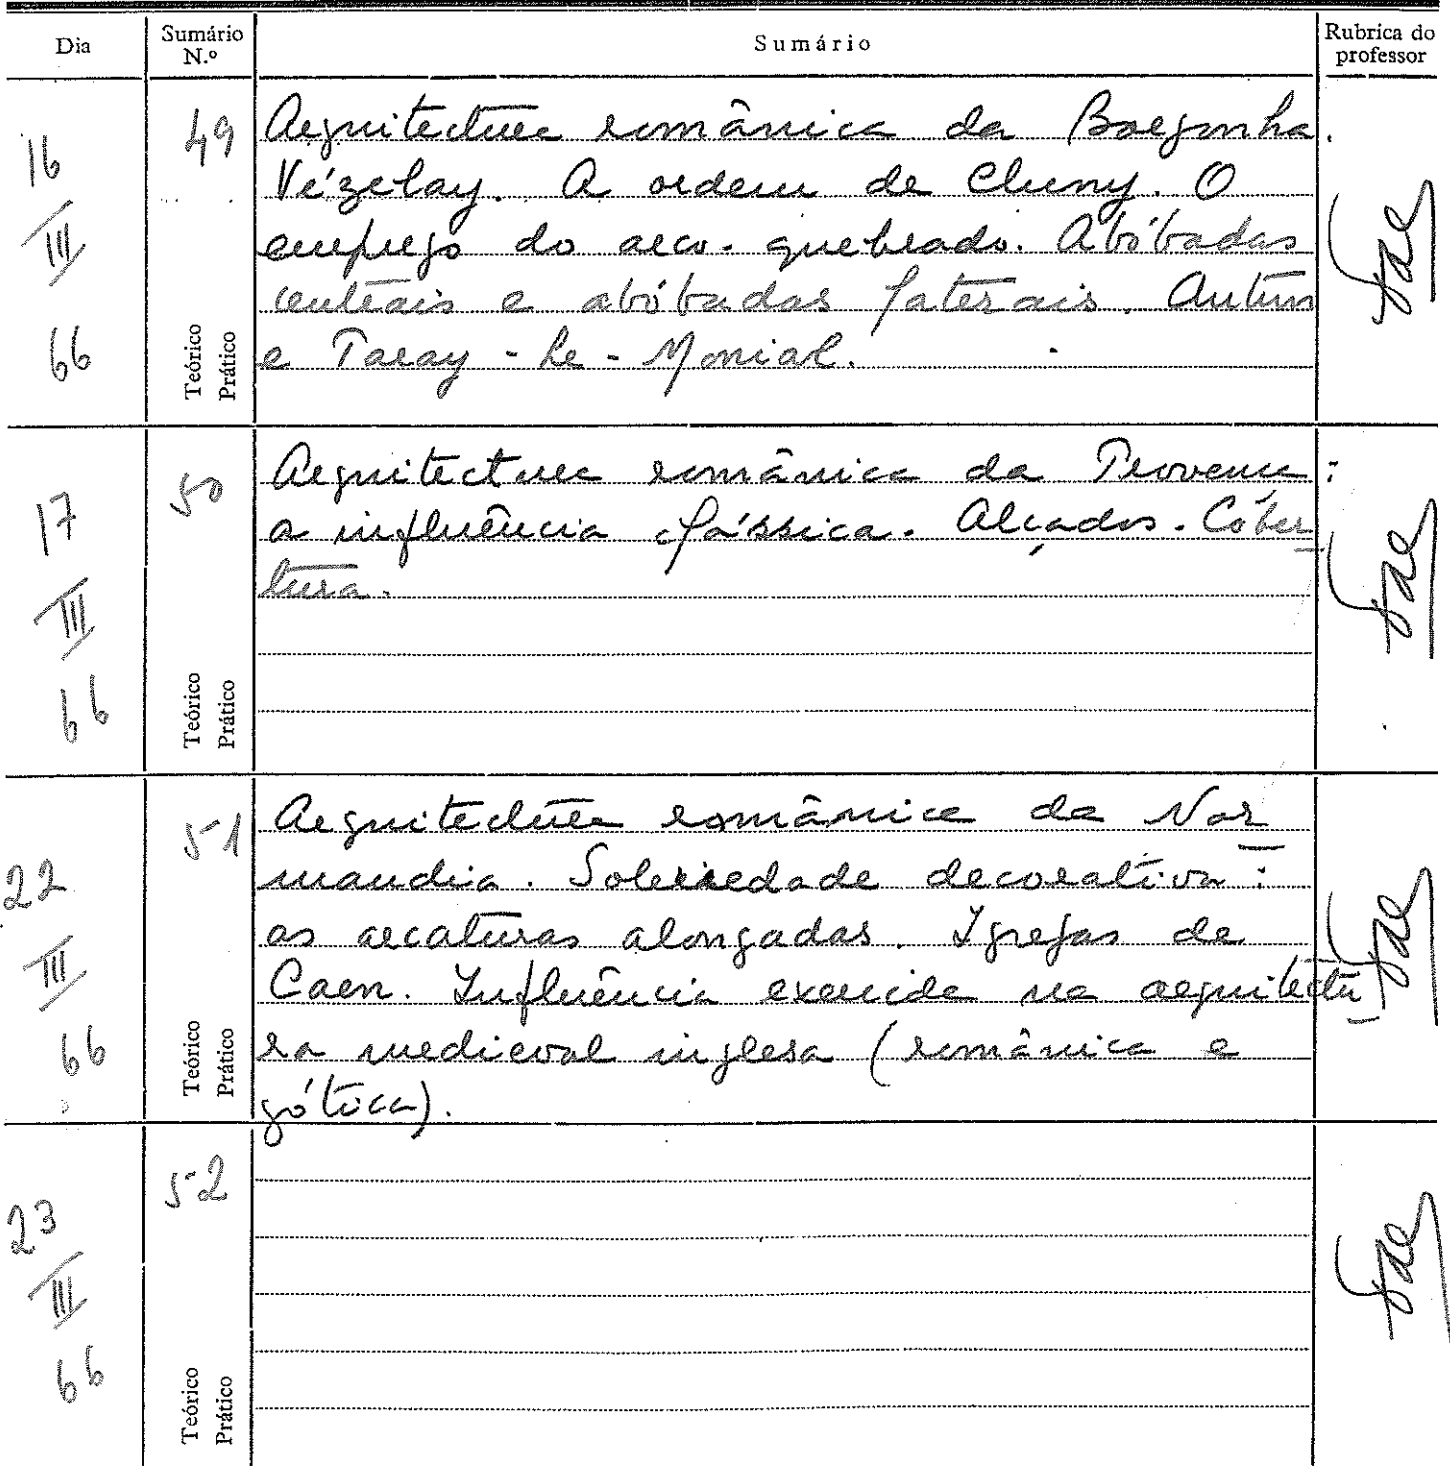 Dia
Sumário N.º
Sumário
Rubrica do professor
16 III 66
49
Teórico
Prático
Arquitectura românica da Borgonha.
Vézelay. A ordem de Cluny. O
emprego do arco-quebrado. Abóbadas
centrais e abóbadas laterais. Autun
e Paray-le-Monial.
17 III 66
50
Teórico
Prático
Arquitectura românica da Provence:
a influência clássica. Alçados. Cober
tura.
22 III 66
51
Teórico
Prático
Arquitectura românica da Nor
mandia. Sobriedade decorativa:
as arcaturas alongadas. Igrejas de
Caen. Influência exercida na arquitectu
ra medieval inglesa (românica e
gótica).
23 III 66
52
Teórico
Prático